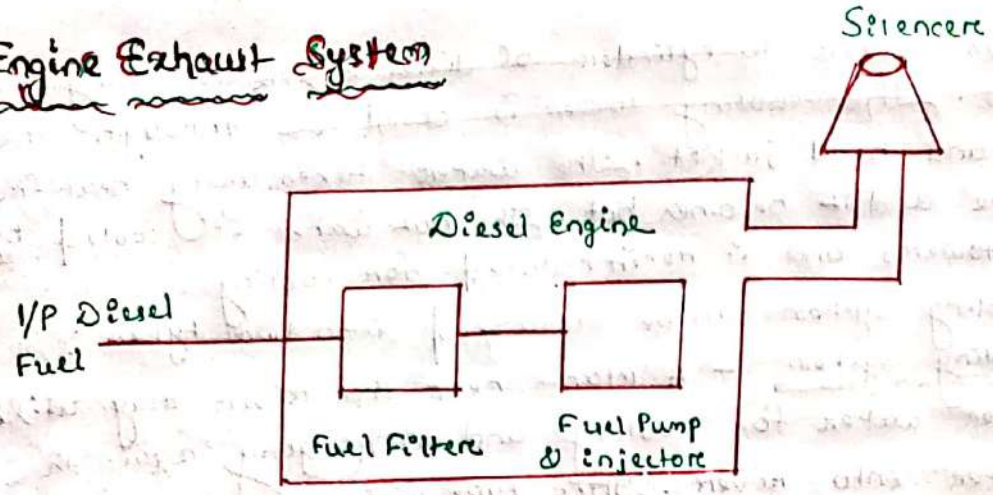 Engine Exhaust System
Silencere
Diesel Engine
I/P Diesel
Fuel
Fuel Filtere
Fuel Pump
& injectore